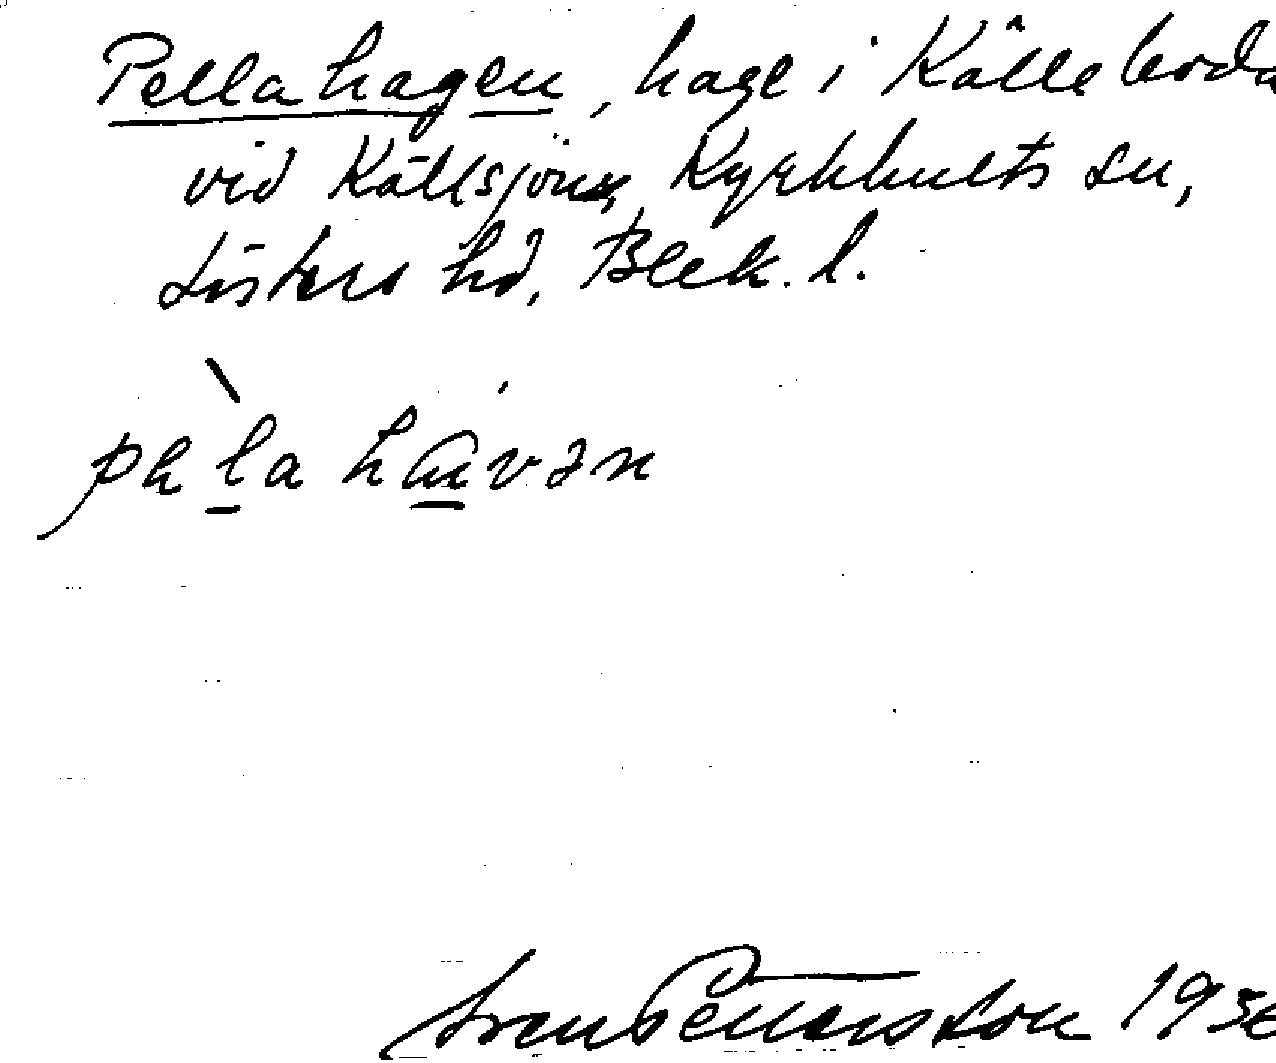 Pellahagen, hage i Källeboda
vid Källsjön, Kyrkhults sn,
Listers hd, Blek. l.
pälahavən
Sven Pettersson 193